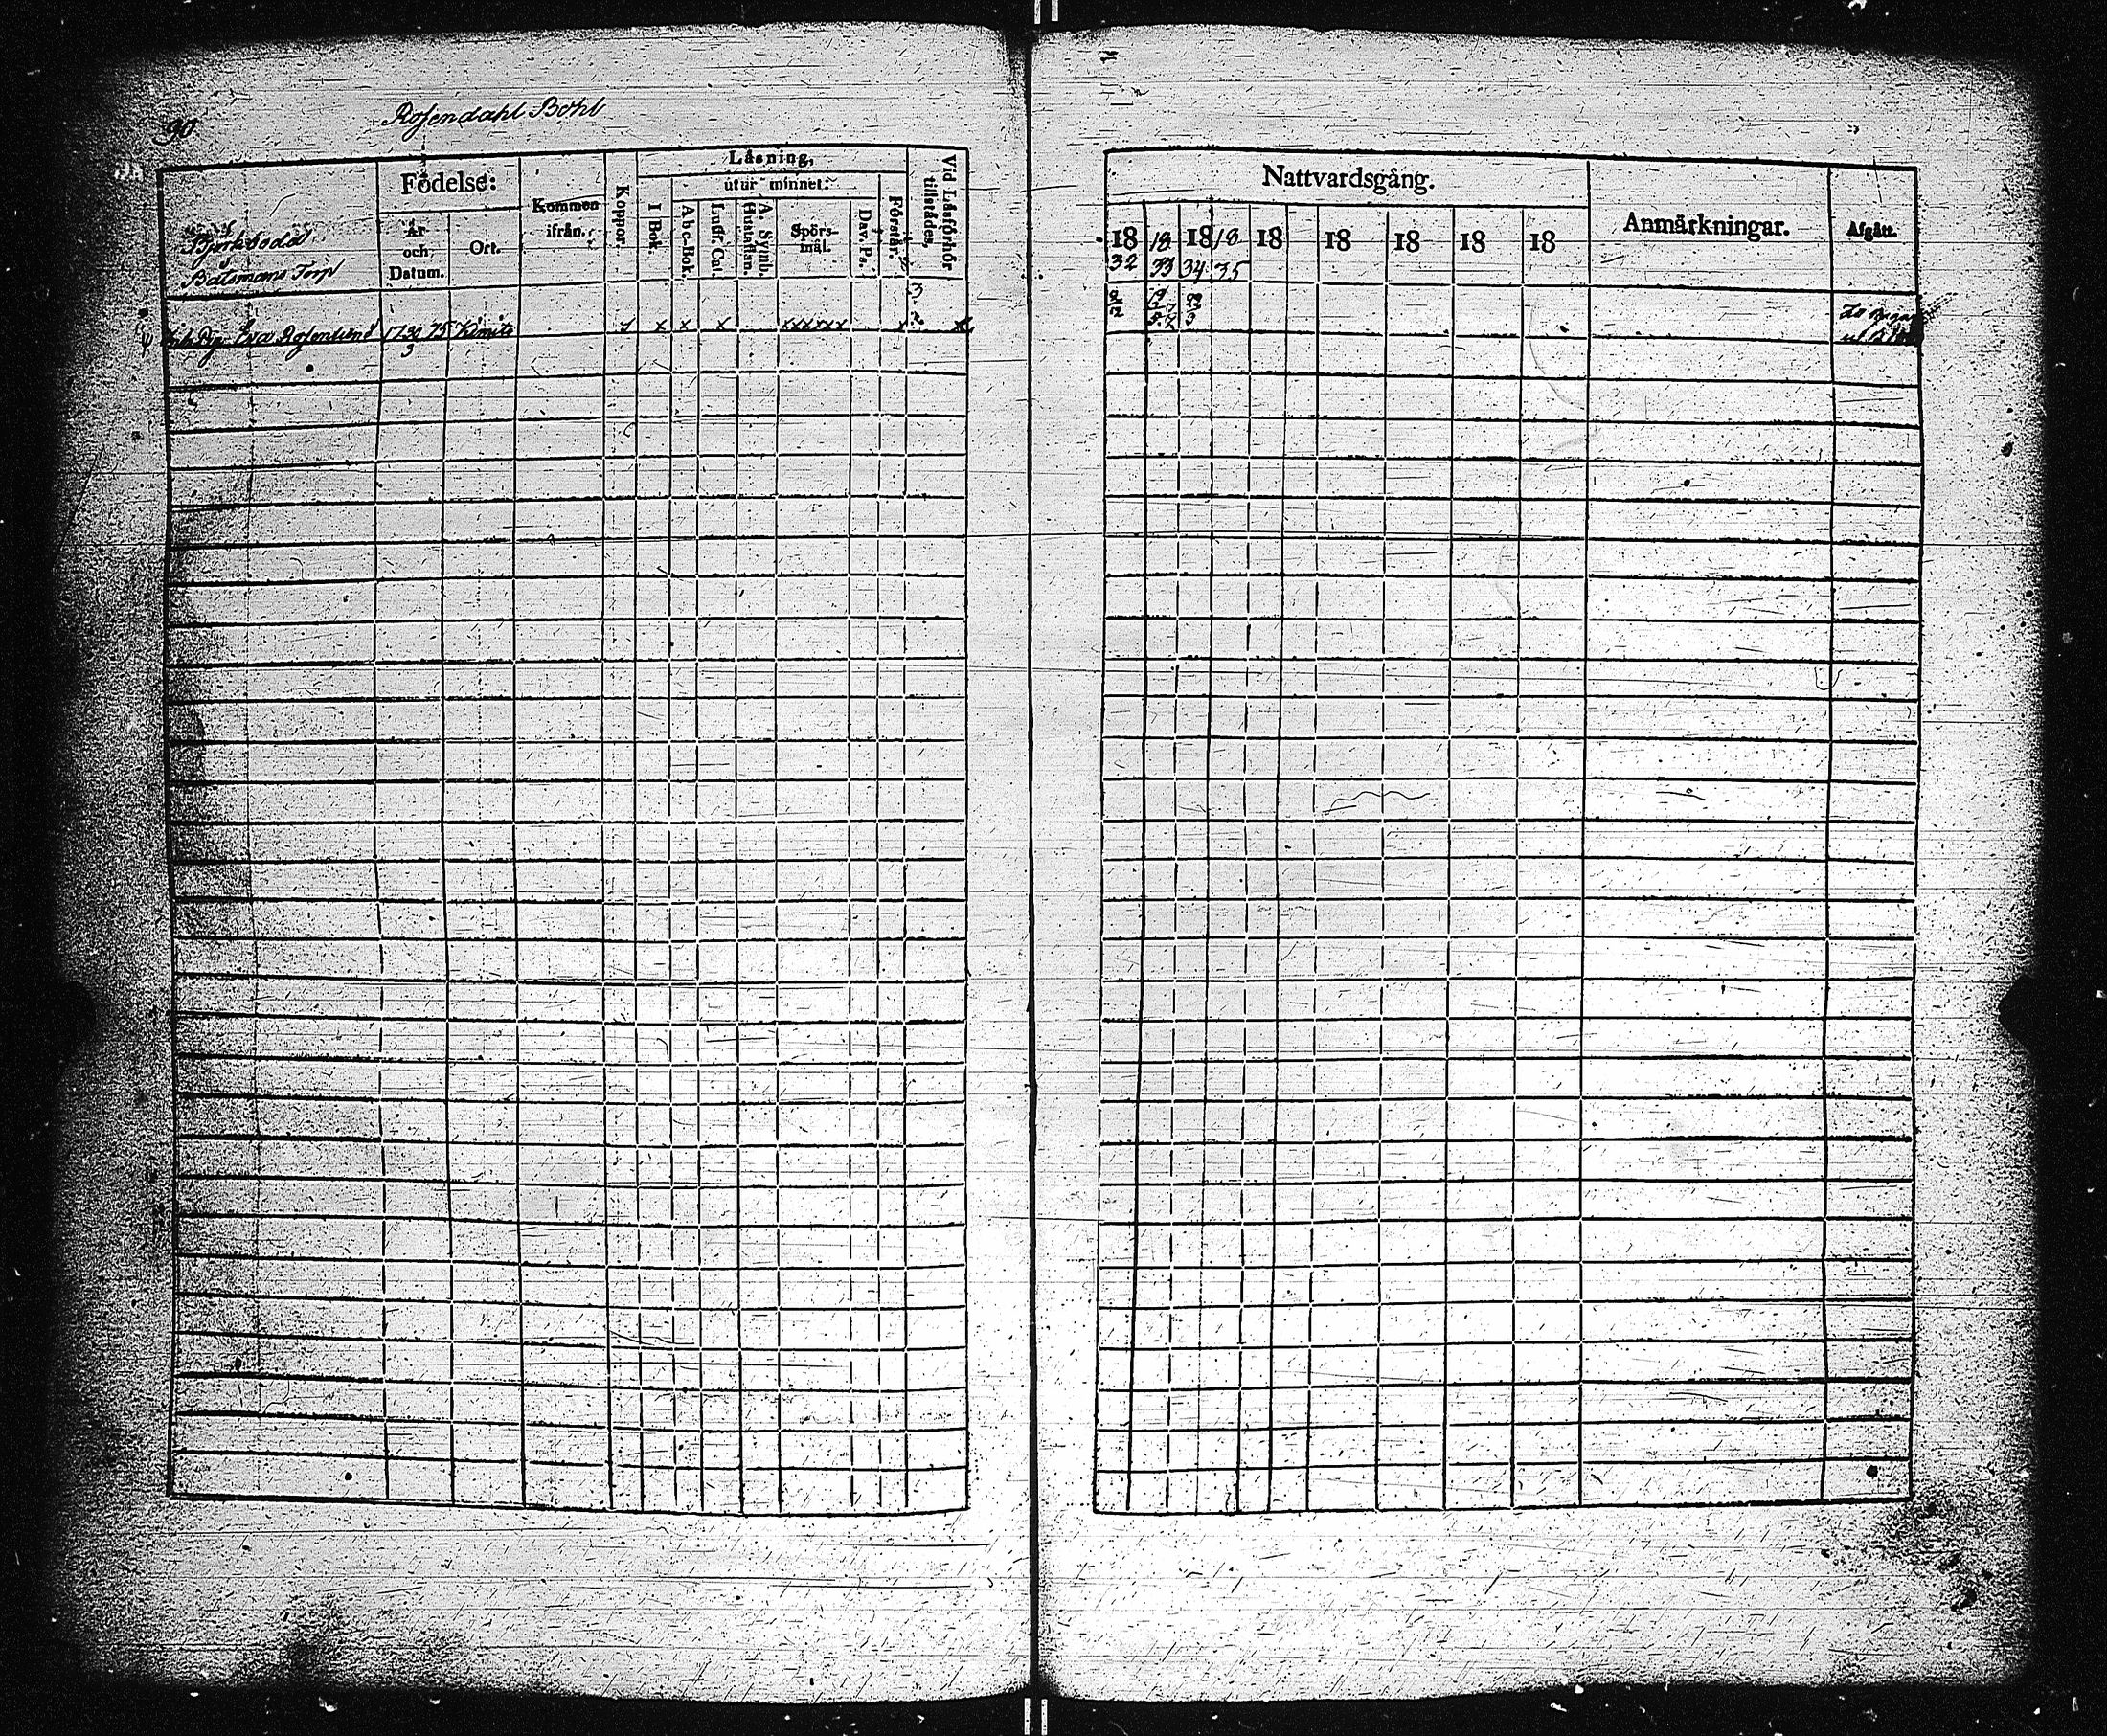 90
Rosendahl Bohl
Födelse:
Kommen ifrån.
Koppor.
Läsning,
utur minnet:
I Bok.
Abc-Bok.
Luth. Cat.
Hustaflan.
A. Symb.
Spörs-
mål.
Dav. Ps.
Förstår.
Vid Läsförhör
tillstädes,
År
och
Datum.
Ort.
Björkboda
Båtsmans Torp
3
Eva Rosenlund 17 30/3 75 Kimito x x x x xxxxx x x
Nattvardsgång.
Anmärkningar.
Afgått.
18 18 18 18 18 18 18 18 18
32 33 34 35